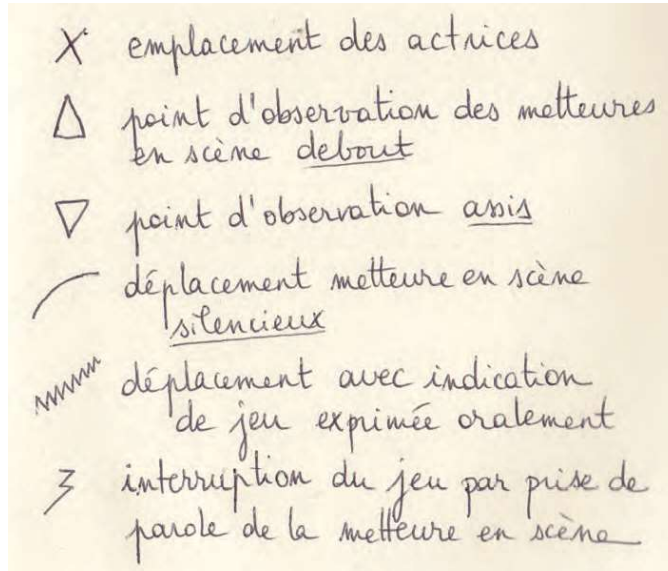 emplacement des actrices
point d'observation des metteures
en scène debout
point d'observation assis
déplacement metteure en scène
silencieux
déplacement avec indication
de jeu exprimée oralement
interruption du jeu par prise de
parole de la metteure en scène